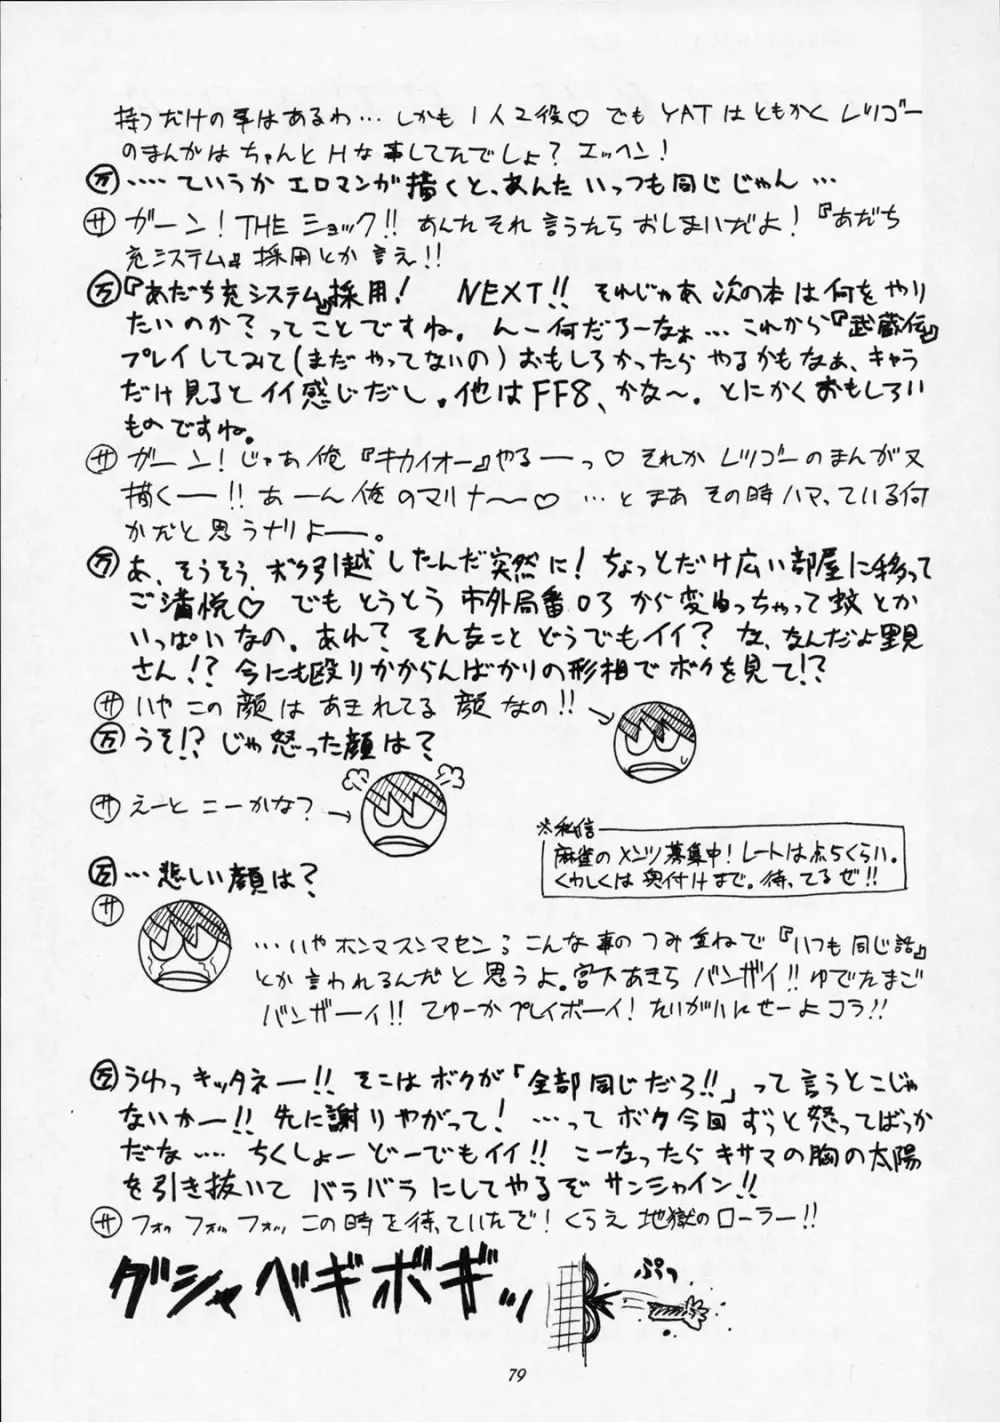 持つだけの事はあるわ…しかも1人2役♡でもYATはともかくレツゴー
のまんがはちゃんとHな事してんでしょ?エッヘン!
万 ‥‥ていうかエロマンガ描くと、あんたいっつも同じじゃん…
サ ガーン!THEショック!!あんたそれ言うたらおしまいだよ!『あだち
充システム』採用とか言え!!
万 『あだち充システム』採用! NEXT!! それじゃあ次の本は何をやり
たいのか?ってことですね。んー何だろーなぁ…これから『武蔵伝』
プレイしてみて(まだやってないの)おもしろかったらやるかもなぁ、キャラ
だけ見るとイイ感じだし。他はFF8、かな〜。とにかくおもしろい
ものですね。
サ ガーン!じゃあ俺『キカイオー』やるーっ♡それかレツゴーのまんが又
描くー!!あーん俺のマリナ〜♡…とまあその時ハマっている何
かだと思うナリよー。
万 あ、そうそう、ボク引越したんだ突然に!ちょっとだけ広い部屋に移って
ご満悦♡でもとうとう市外局番03から変わっちゃって蚊とか
いっぱいなの。あれ?そんなことどうでもイイ?な、なんだよ里見
さん!?今にも殴りかからんばかりの形相でボクを見て!?
サ いやこの顔はあきれてる顔なの!!
万 うそ!?じゃ怒った顔は?
サ えーとこーかな?
※私信
麻雀のメンツ募集中!レートは点5くらい。
くわしくは奥付けまで。待ってるぜ!!
万 …悲しい顔は?
サ
…いやホンマスンマセン;こんな事のつみ重ねで『いつも同じ話』
とか言われるんだと思うよ。宮下あきらバンザイ!!ゆでたまご
バンザーイ!!てゆーかプレイボーイ!たいがいにせーよコラ!!
万 うわっキッタネー!!そこはボクが「全部同じだろ!!」って言うとこじゃ
ないかー!!先に謝りやがって!…ってボク今回ずっと怒ってばっか
だな‥‥ちくしょーどーでもイイ!!こーなったらキサマの胸の太陽
を引き抜いてバラバラにしてやるぞサンシャイン!!
サ フォッフォッフォッ、この時を待っていたぞ!くらえ地獄のローラー!!
グシャベギボギッ
ぷっ
79